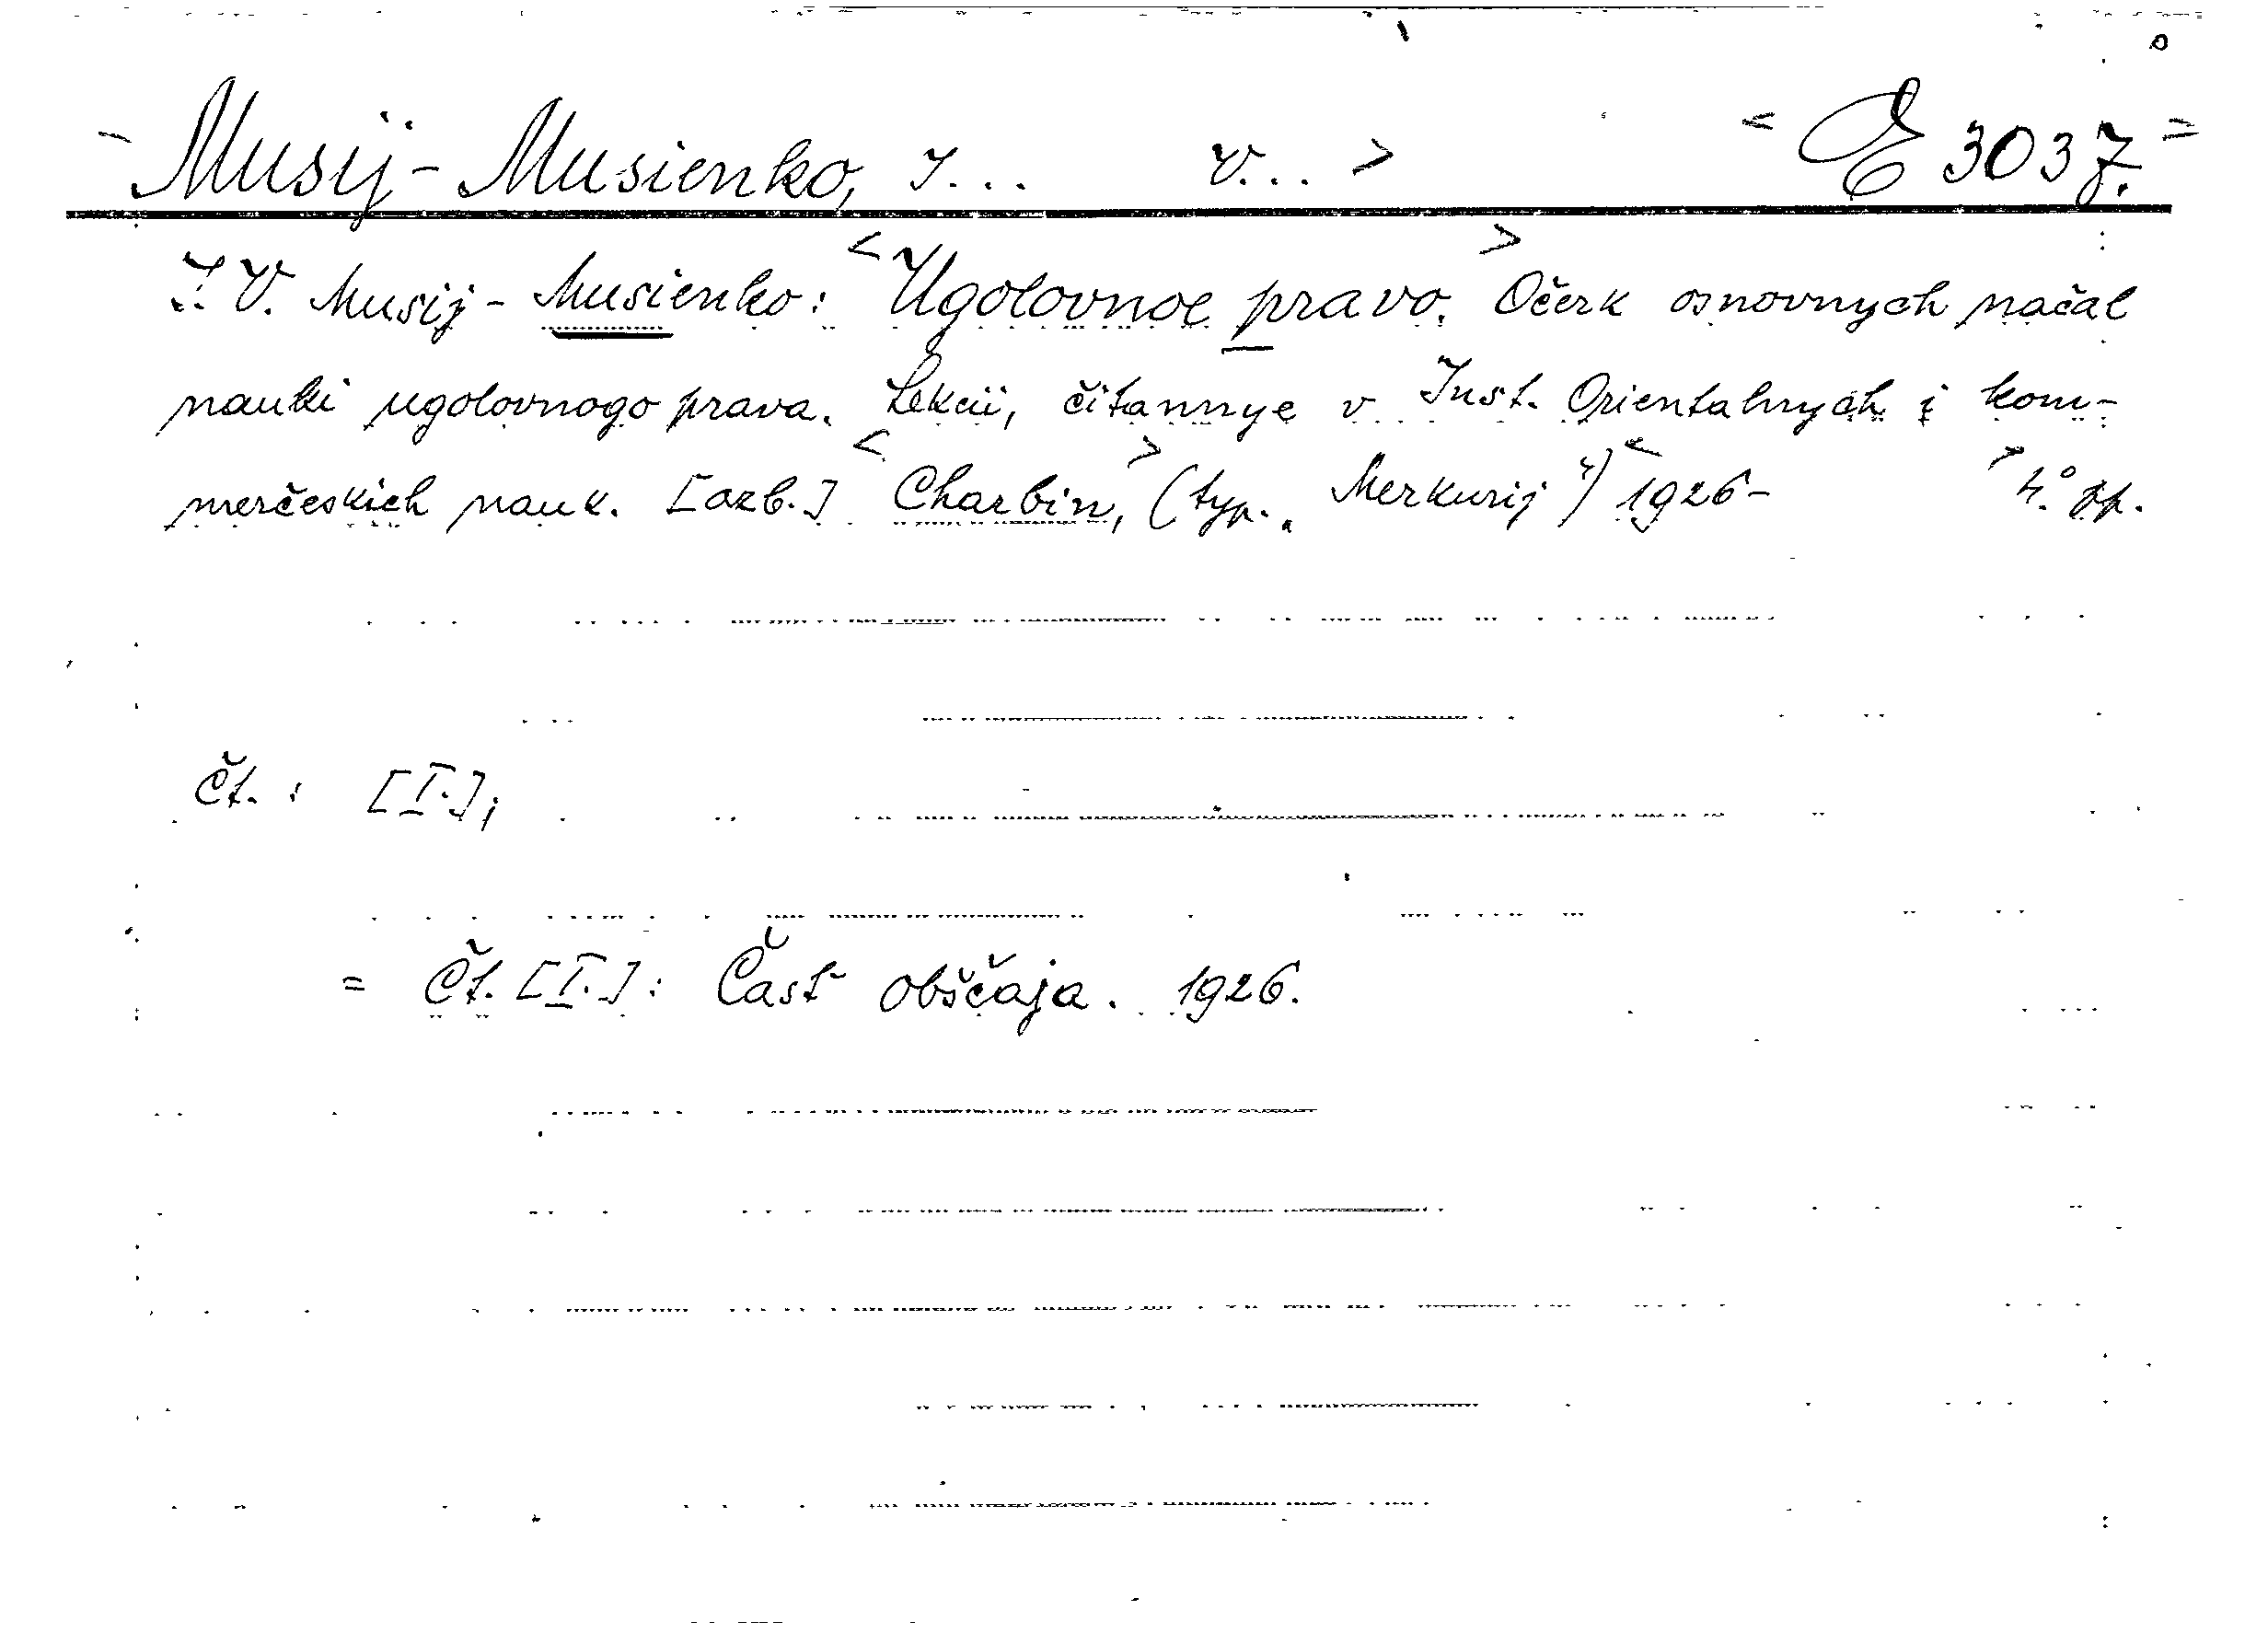 Musij-Musienko, I... V... > < E 3037. =
I. V. Musij-Musienko: < Ugolovnoe pravo. > Očerk osnovnych načal
nauki ugolovnogo prava. Lekcii, čitannye v Inst. Orientalnych i kom-
merčeskich nauk. [azb.] < Charbin, > (typ. „Merkurij“) < 1926- > 4.° pp.
Čt. : [I.];
= Čt. [I.] : Časť obščaja. 1926.